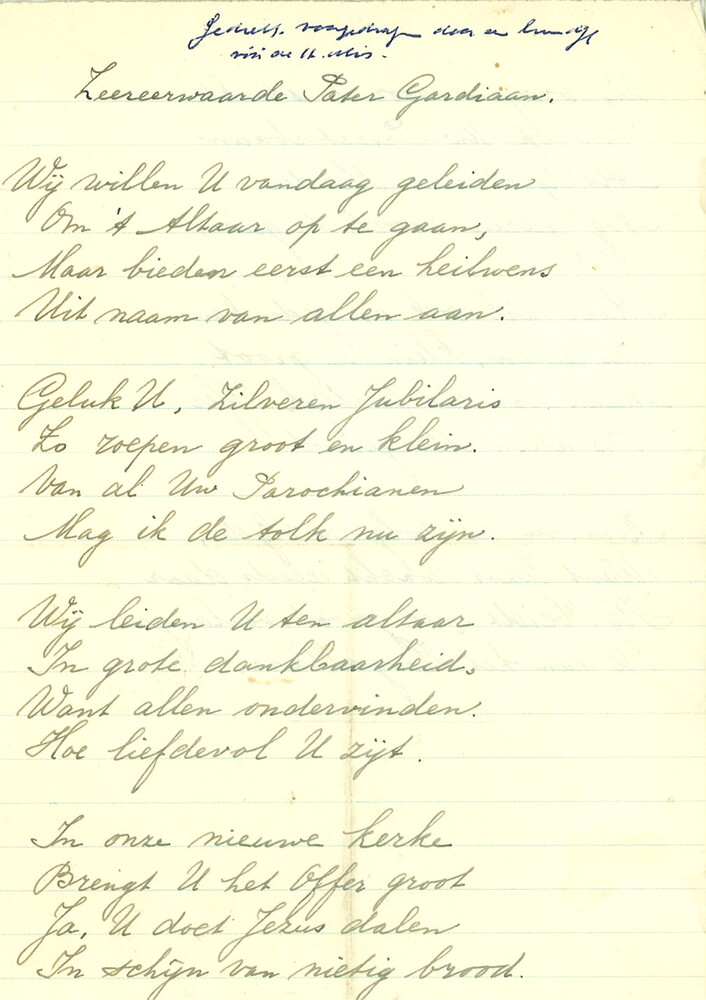 Gedicht voorgedragen door een bruidje
vóór de H. Mis.
Zeereerwaarde Pater Gardiaan.
Wij willen U vandaag geleiden
Om 't Altaar op te gaan,
Maar bieden eerst een heilwens
Uit naam van allen aan.
Geluk U, Zilveren Jubilaris
Zo roepen groot en klein.
Van al Uw Parochianen
Mag ik de tolk nu zijn.
Wij leiden U ten altaar
In grote dankbaarheid,
Want allen ondervinden.
Hoe liefdevol U zijt.
In onze nieuwe kerke
Brengt U het Offer groot
Ja, U doet Jezus dalen
In schijn van nietig brood.